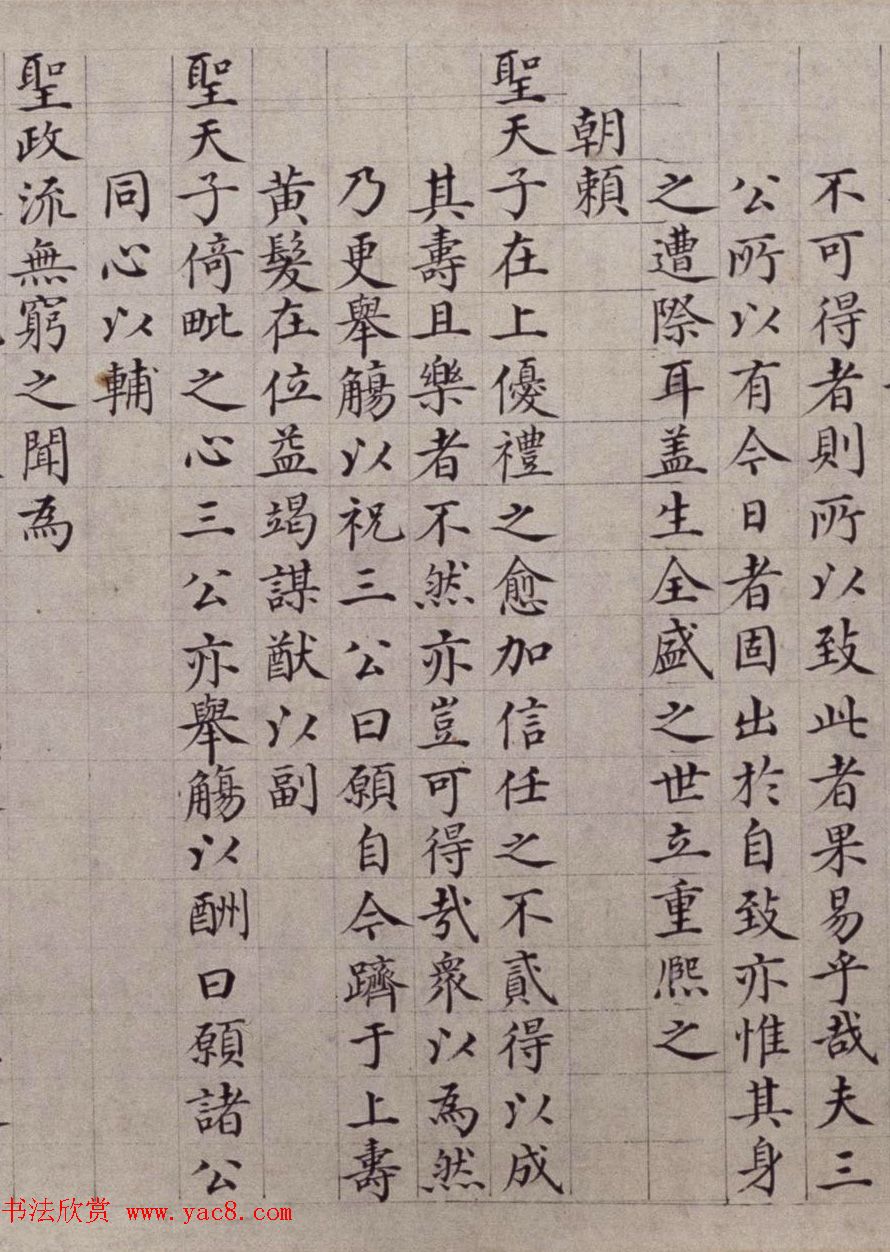 不可得者則所以致此者果易乎哉夫三
公所以有今日者固出於自致亦惟其身
之遭際耳盖生全盛之世立重熈之
朝頼
聖天子在上優禮之愈加信任之不貳得以成
其壽且樂者不然亦豈可得哉衆以為然
乃更舉觴以祝三公曰願自今躋于上壽
黄髮在位益竭謀猷以副
聖天子倚毗之心三公亦舉觴以酬曰願諸公
同心以輔
聖政流無窮之聞為
书法欣赏 www.yac8.com